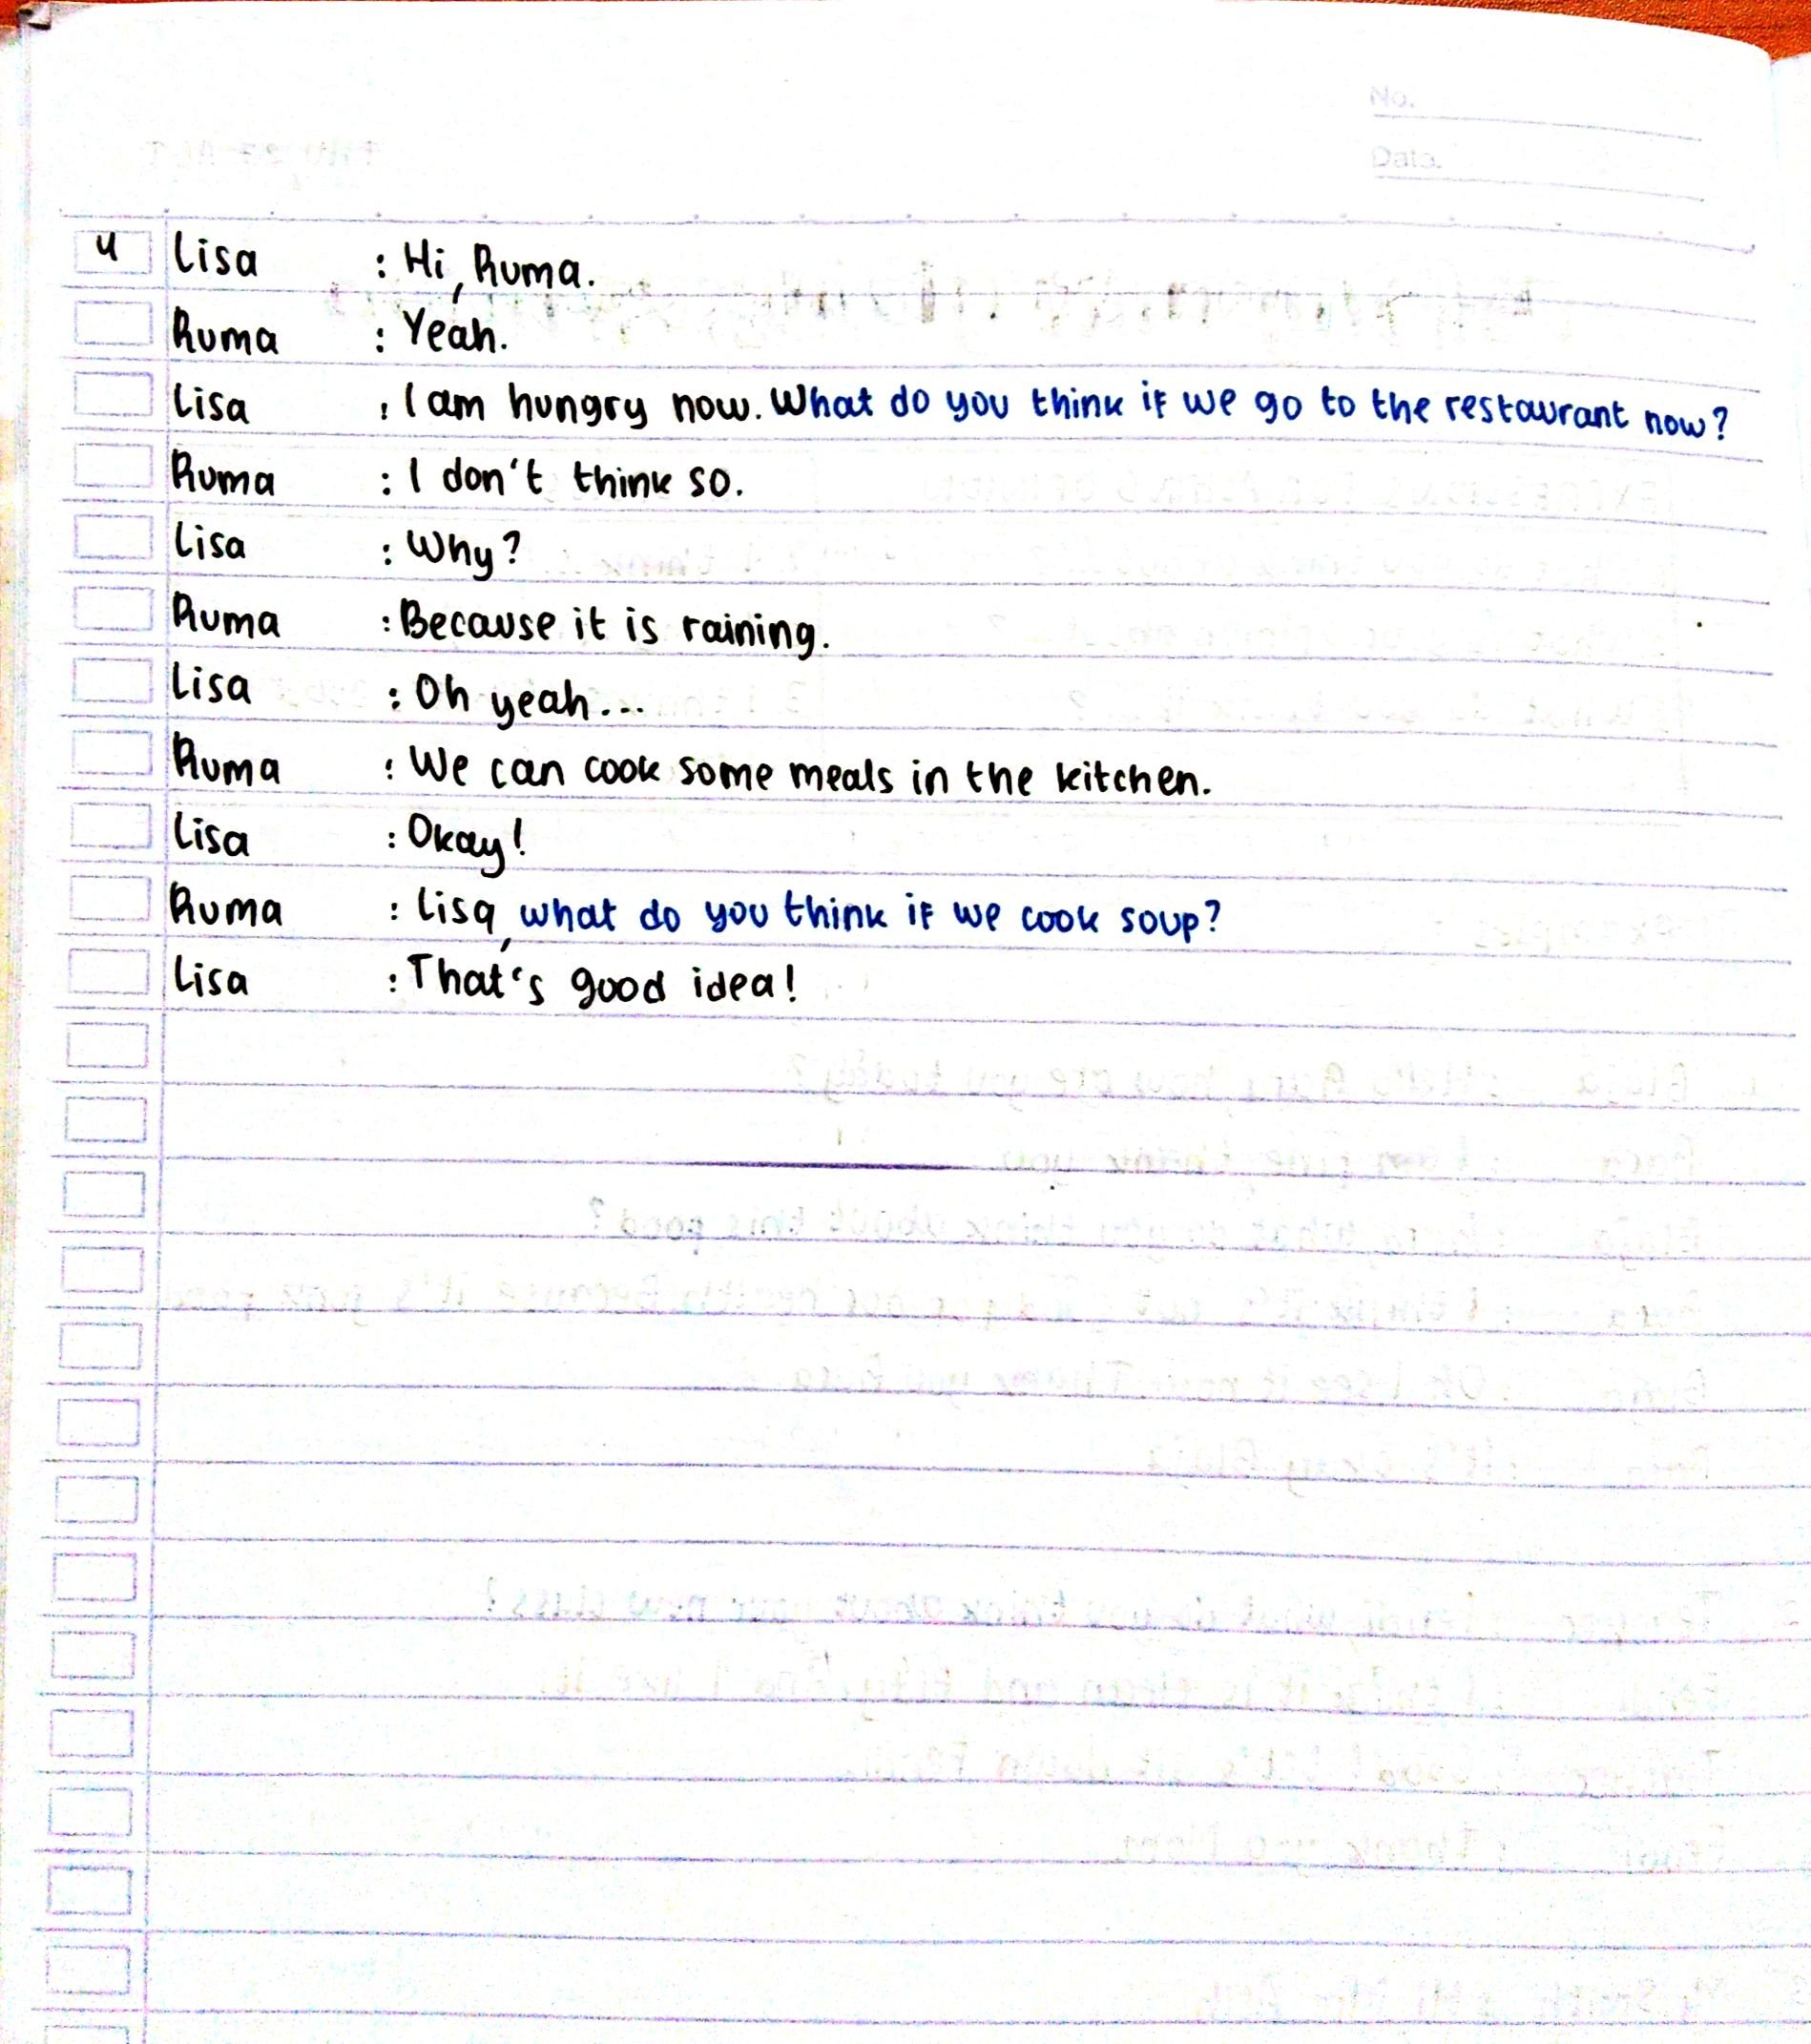 No.
Date.
4 Lisa : Hi, Ruma.
Ruma : Yeah.
Lisa : I am hungry now. What do you think if we go to the restaurant now?
Ruma : I don't think so.
Lisa : Why?
Ruma : Because it is raining.
Lisa : Oh yeah...
Ruma : We can cook some meals in the kitchen.
Lisa : Okay!
Ruma : Lisa, what do you think if we cook soup?
Lisa : That's good idea!